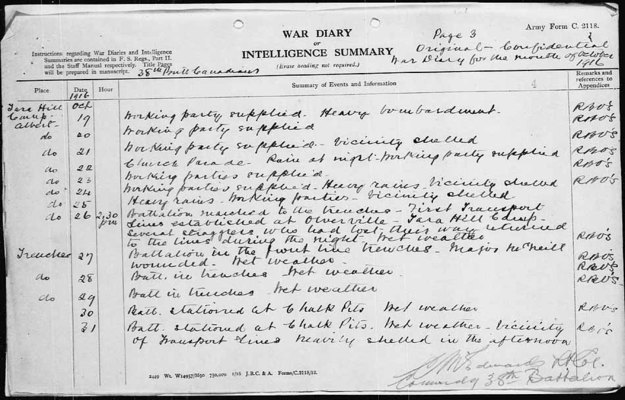 WAR DIARY
or
INTELLIGENCE SUMMARY
(Erase heading not required.)
Page 3
Army Form C. 2118.
Original - Confidential
War Diary for the month of October
1916
Instructions regarding War Diaries and Intelligence
Summaries are contained in F. S. Regs., Part II.
and the Staff Manual respectively. Title Pages
will be prepared in manuscript.
38th Battn Canadians
Place Date Hour Summary of Events and Information Remarks and references to Appendices
1916
Tara Hill Oct
Camp 19 Working party supplied. Heavy bombardment.
Albert
do 20 Working party supplied
do 21 Working party supplied - Vicinity shelled
do 22 Church Parade - Rain at night - Working party supplied
do 23 Working parties supplied
do 24 Working parties supplied - Heavy rains. Vicinity shelled
do 25 Heavy rains - Working parties - Vicinity shelled
do 26 2.30 pm Battalion marched to the trenches - First Transport
Lines established at - Tara Hill Camp -
Several stragglers who had lost their way returned
to the lines during the night - Wet weather
Trenches 27 Battalion in the front line trenches - Major McNeill
wounded - Wet weather.
do 28 Batt. in trenches Wet weather.
do 29 Batt in trenches - Wet weather
30 Batt. stationed at Chalk Pits Wet weather
31 Batt. stationed at Chalk Pits. Wet weather - Vicinity
of Transport Lines heavily shelled in the afternoon
C M Edwards Lt Col.
Commdg 38th Battalion
2449 Wt. W14957/M90 750,000 1/16 J.B.C. & A. Forms/C.2118/12.